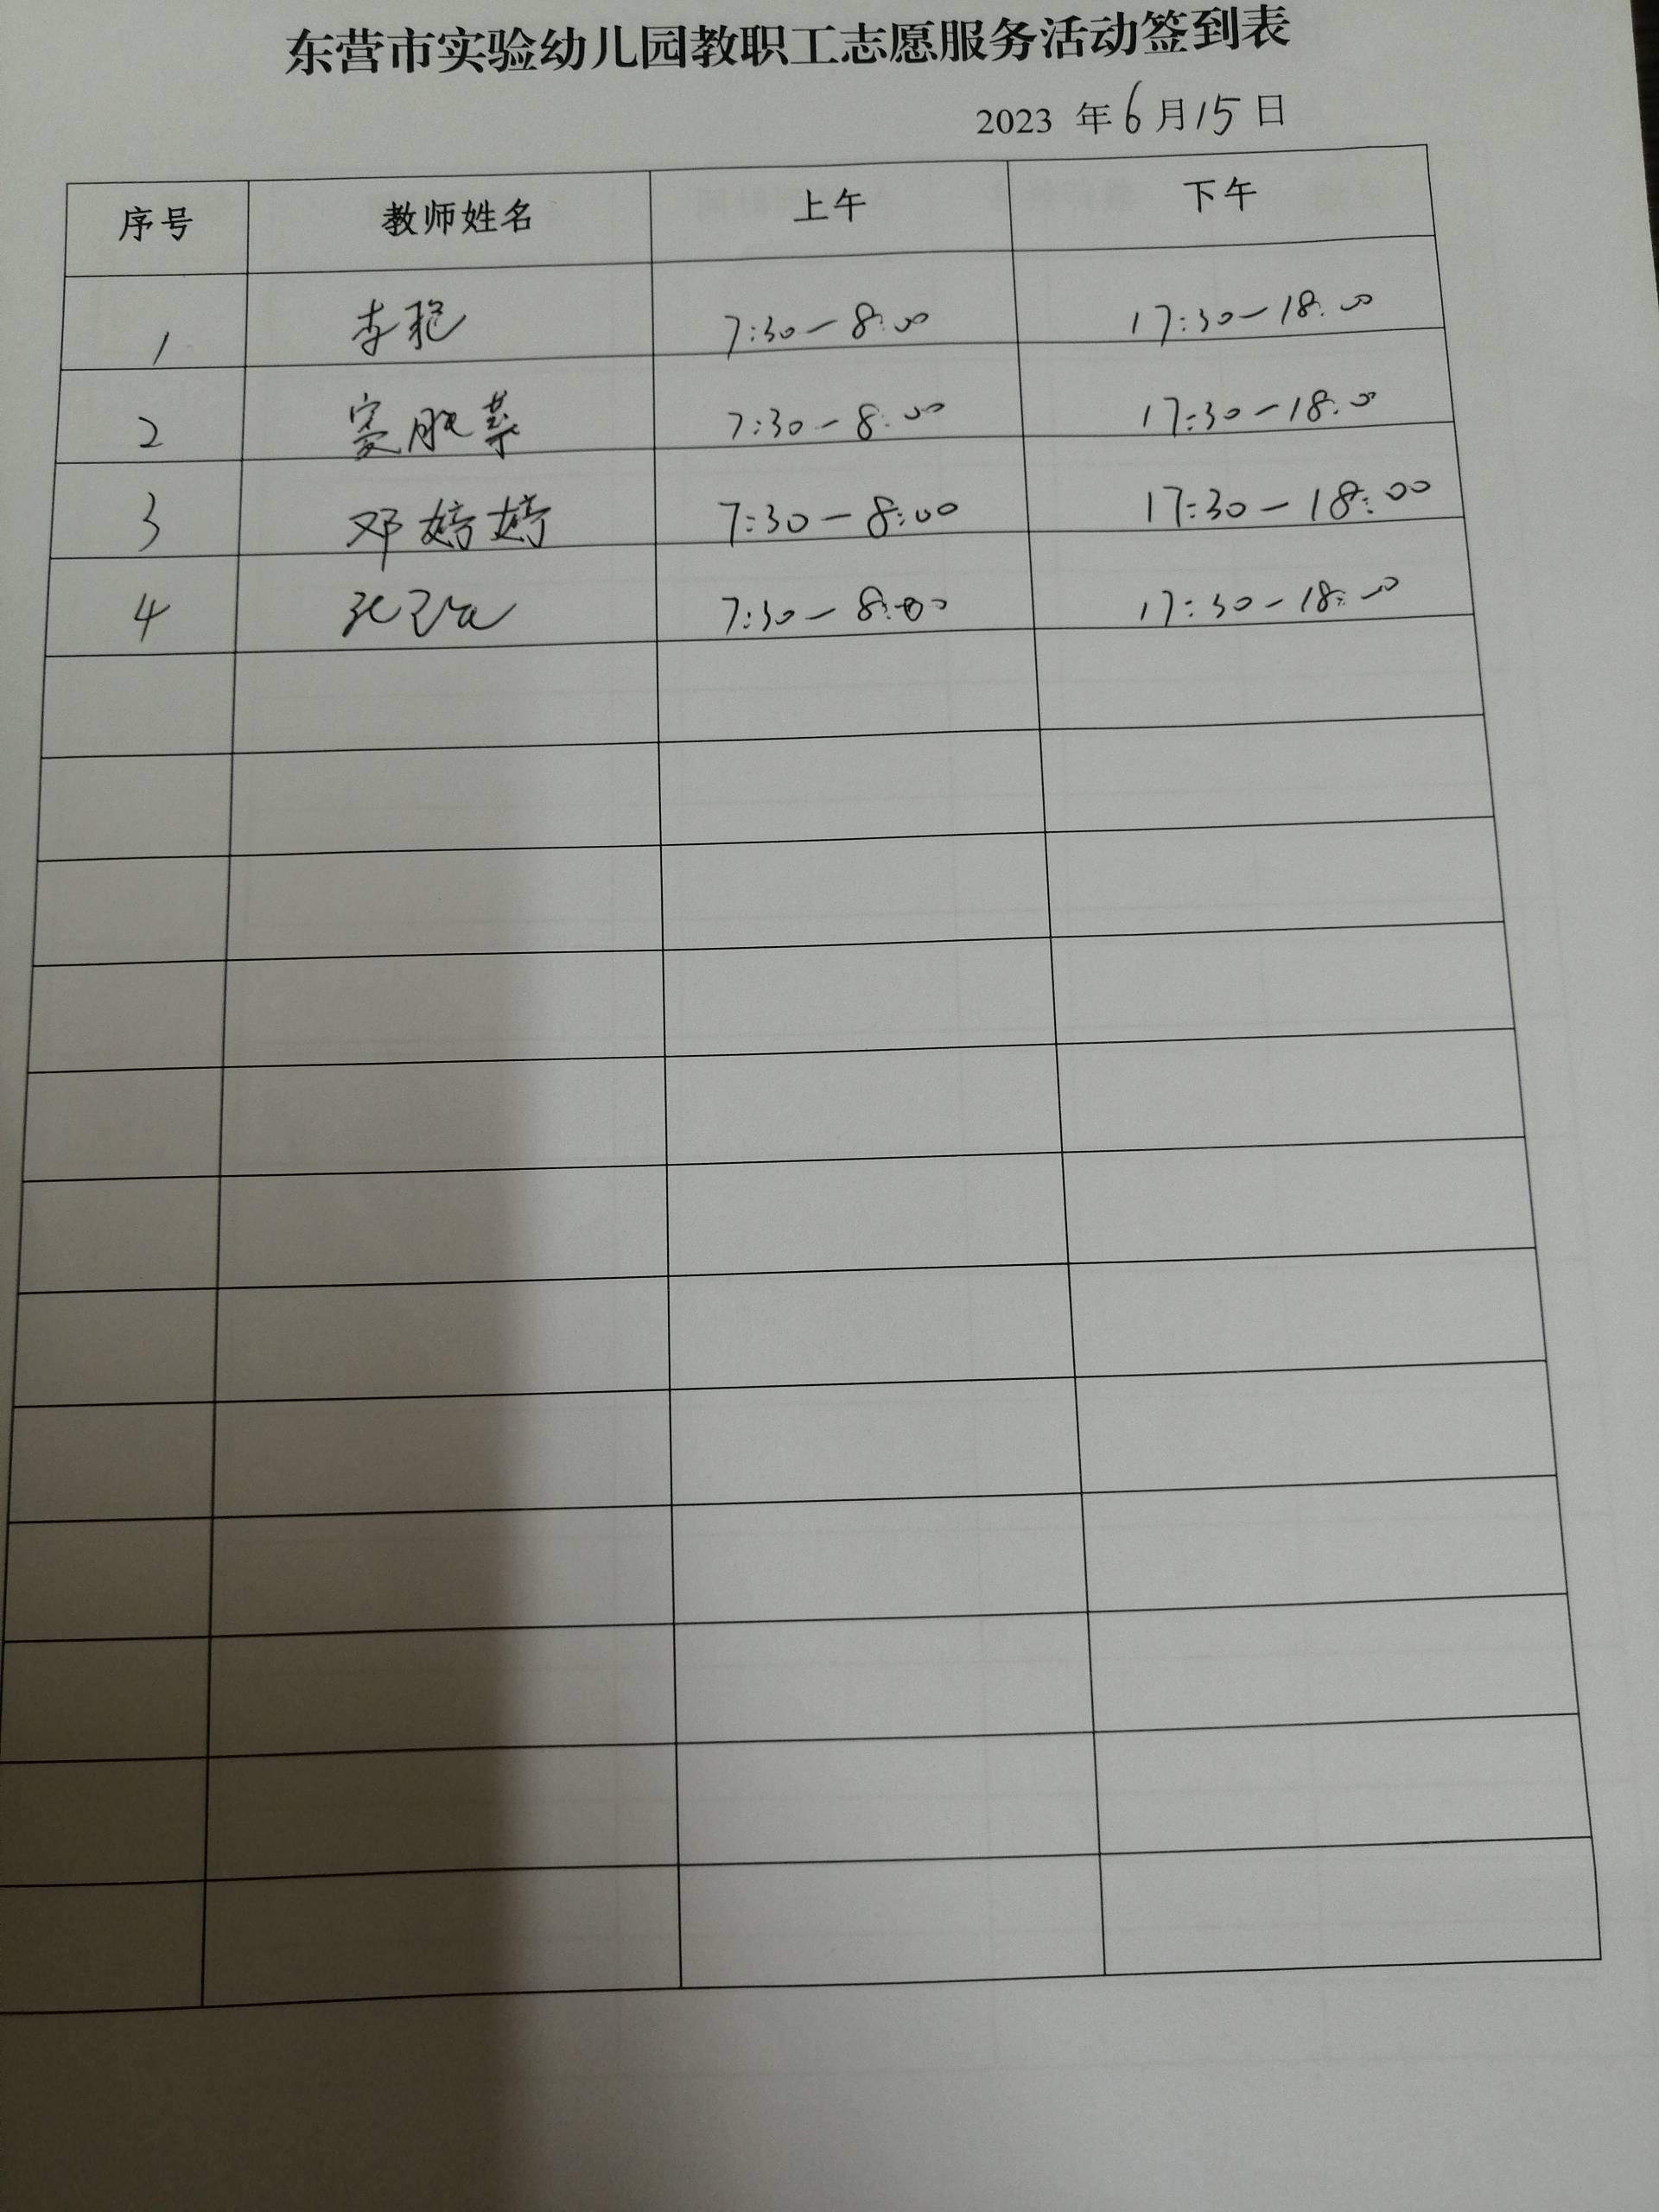 东营市实验幼儿园教职工志愿服务活动签到表
2023 年 6 月 15 日
序号 教师姓名 上午 下午
1 李艳 7:30-8:00 17:30-18:00
2 7:30-8:00 17:30-18:00
3 邓婷婷 7:30-8:00 17:30-18:00
4 7:30-8:00 17:30-18:00